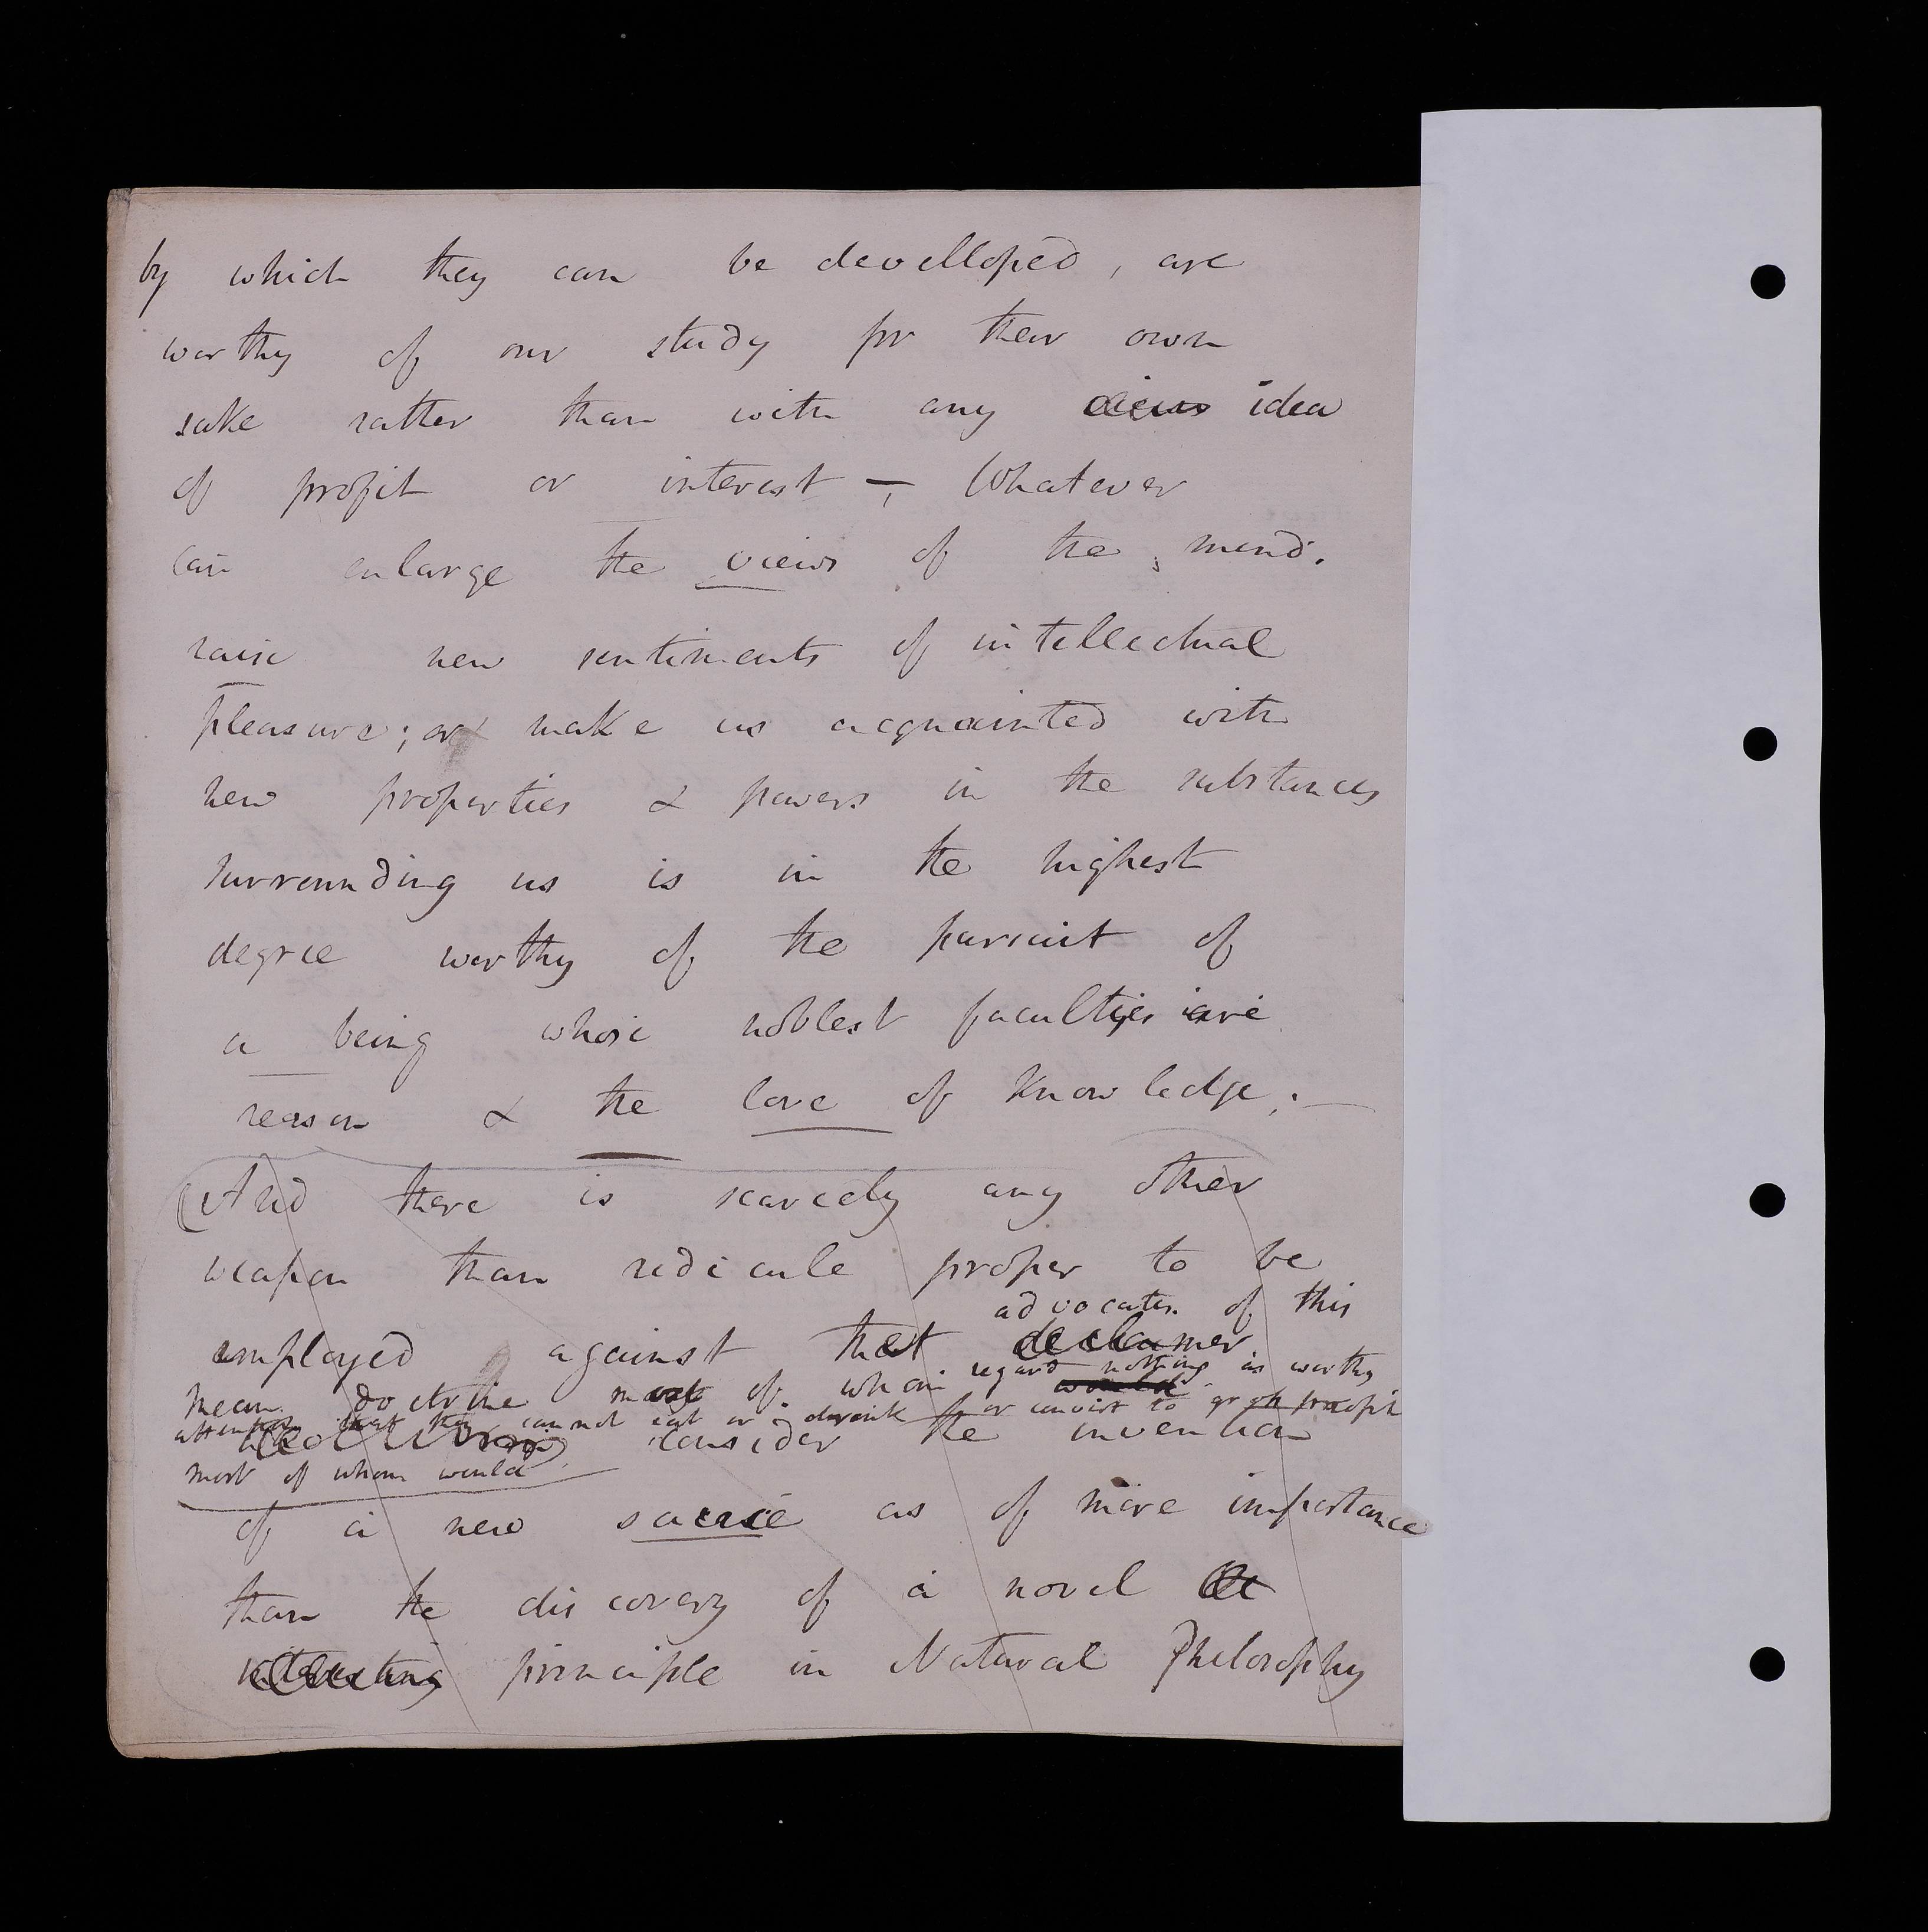 by which they can be develloped, are
worthy of our study for their own
sake rather than with any views idea
of profit or interest –, Whatever
can enlarge the views of the mind,
raise new sentiments of intellectual
pleasure; or make us acquainted with
new properties & powers in the substances
surrounding us is in the highest
degree worthy of the pursuit of
a being whose noblest faculties are
reason & the love of knowledge; –
(And there is scarcely any other
weapon than ridicule proper to be
advocates of this
employed against that declaimer
regard nothing as worthy
mean doctrine most of whom would
attention that they cannot eat or drink or convert to gross profit
consider the invention
most of whom would
of a new sauce as of more importance
than the discovery of a novel
interesting principle in Natural Philosophy